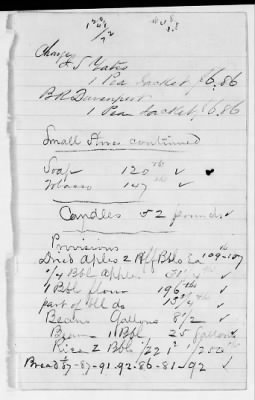 Charge
L S Yates
1 Pea Jacket, $6,86
B R Davenport
1 Pea Jacket, $6,86
Small Stores continued
Soap 120 lb ✓
Tobacco 147 lb ✓
Candles 52 pounds ✓
Provisions
Dried Aples 2 Hlf Bbls Ea 109-107
1/4 Bbl Apples
1 Bbl flour 196 lbs ✓
part of Bll do
Beans Gallons 8 1/2 ✓
Beans 1 Bbl 25 Gallons
Rice 2 Bbls
Bread 87-87-91.92-86-81-92 ✓